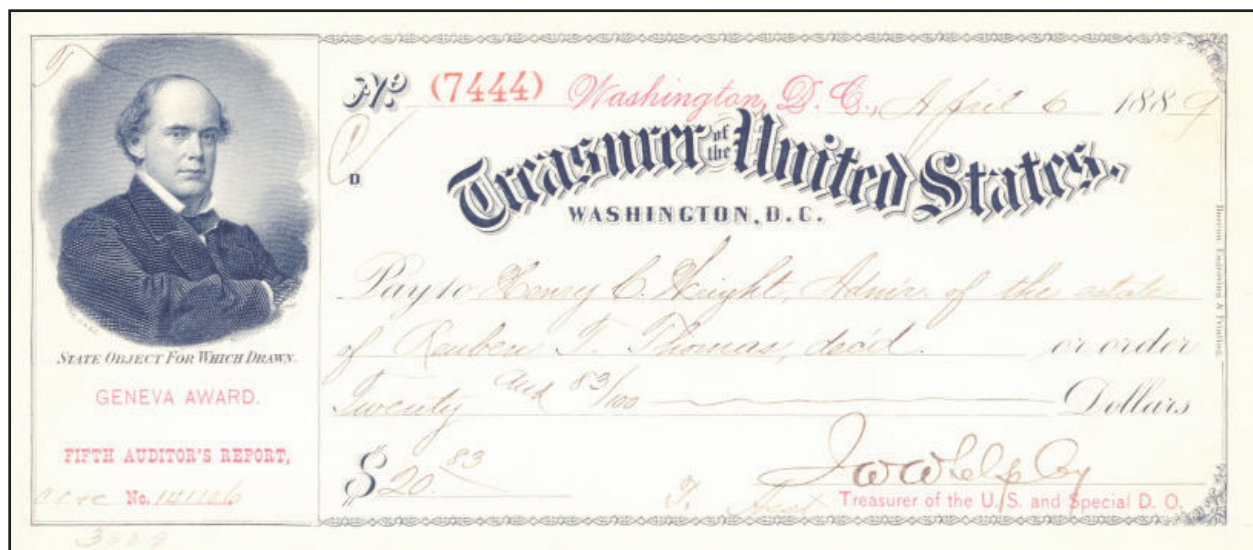 No (7444) Washington, D.C., April 6 1889
D
Treasurer of the United States.
WASHINGTON, D.C.
Pay to Henry C. Wright, Admir. of the estate
of Reuben T. Thomas, dec'd. or order
Twenty and 83/100 Dollars
$20.83
J W Whelpley
Treasurer of the U.S. and Special D. O.
STATE OBJECT FOR WHICH DRAWN.
GENEVA AWARD.
FIFTH AUDITOR'S REPORT,
No.
Bureau, Engraving & Printing.